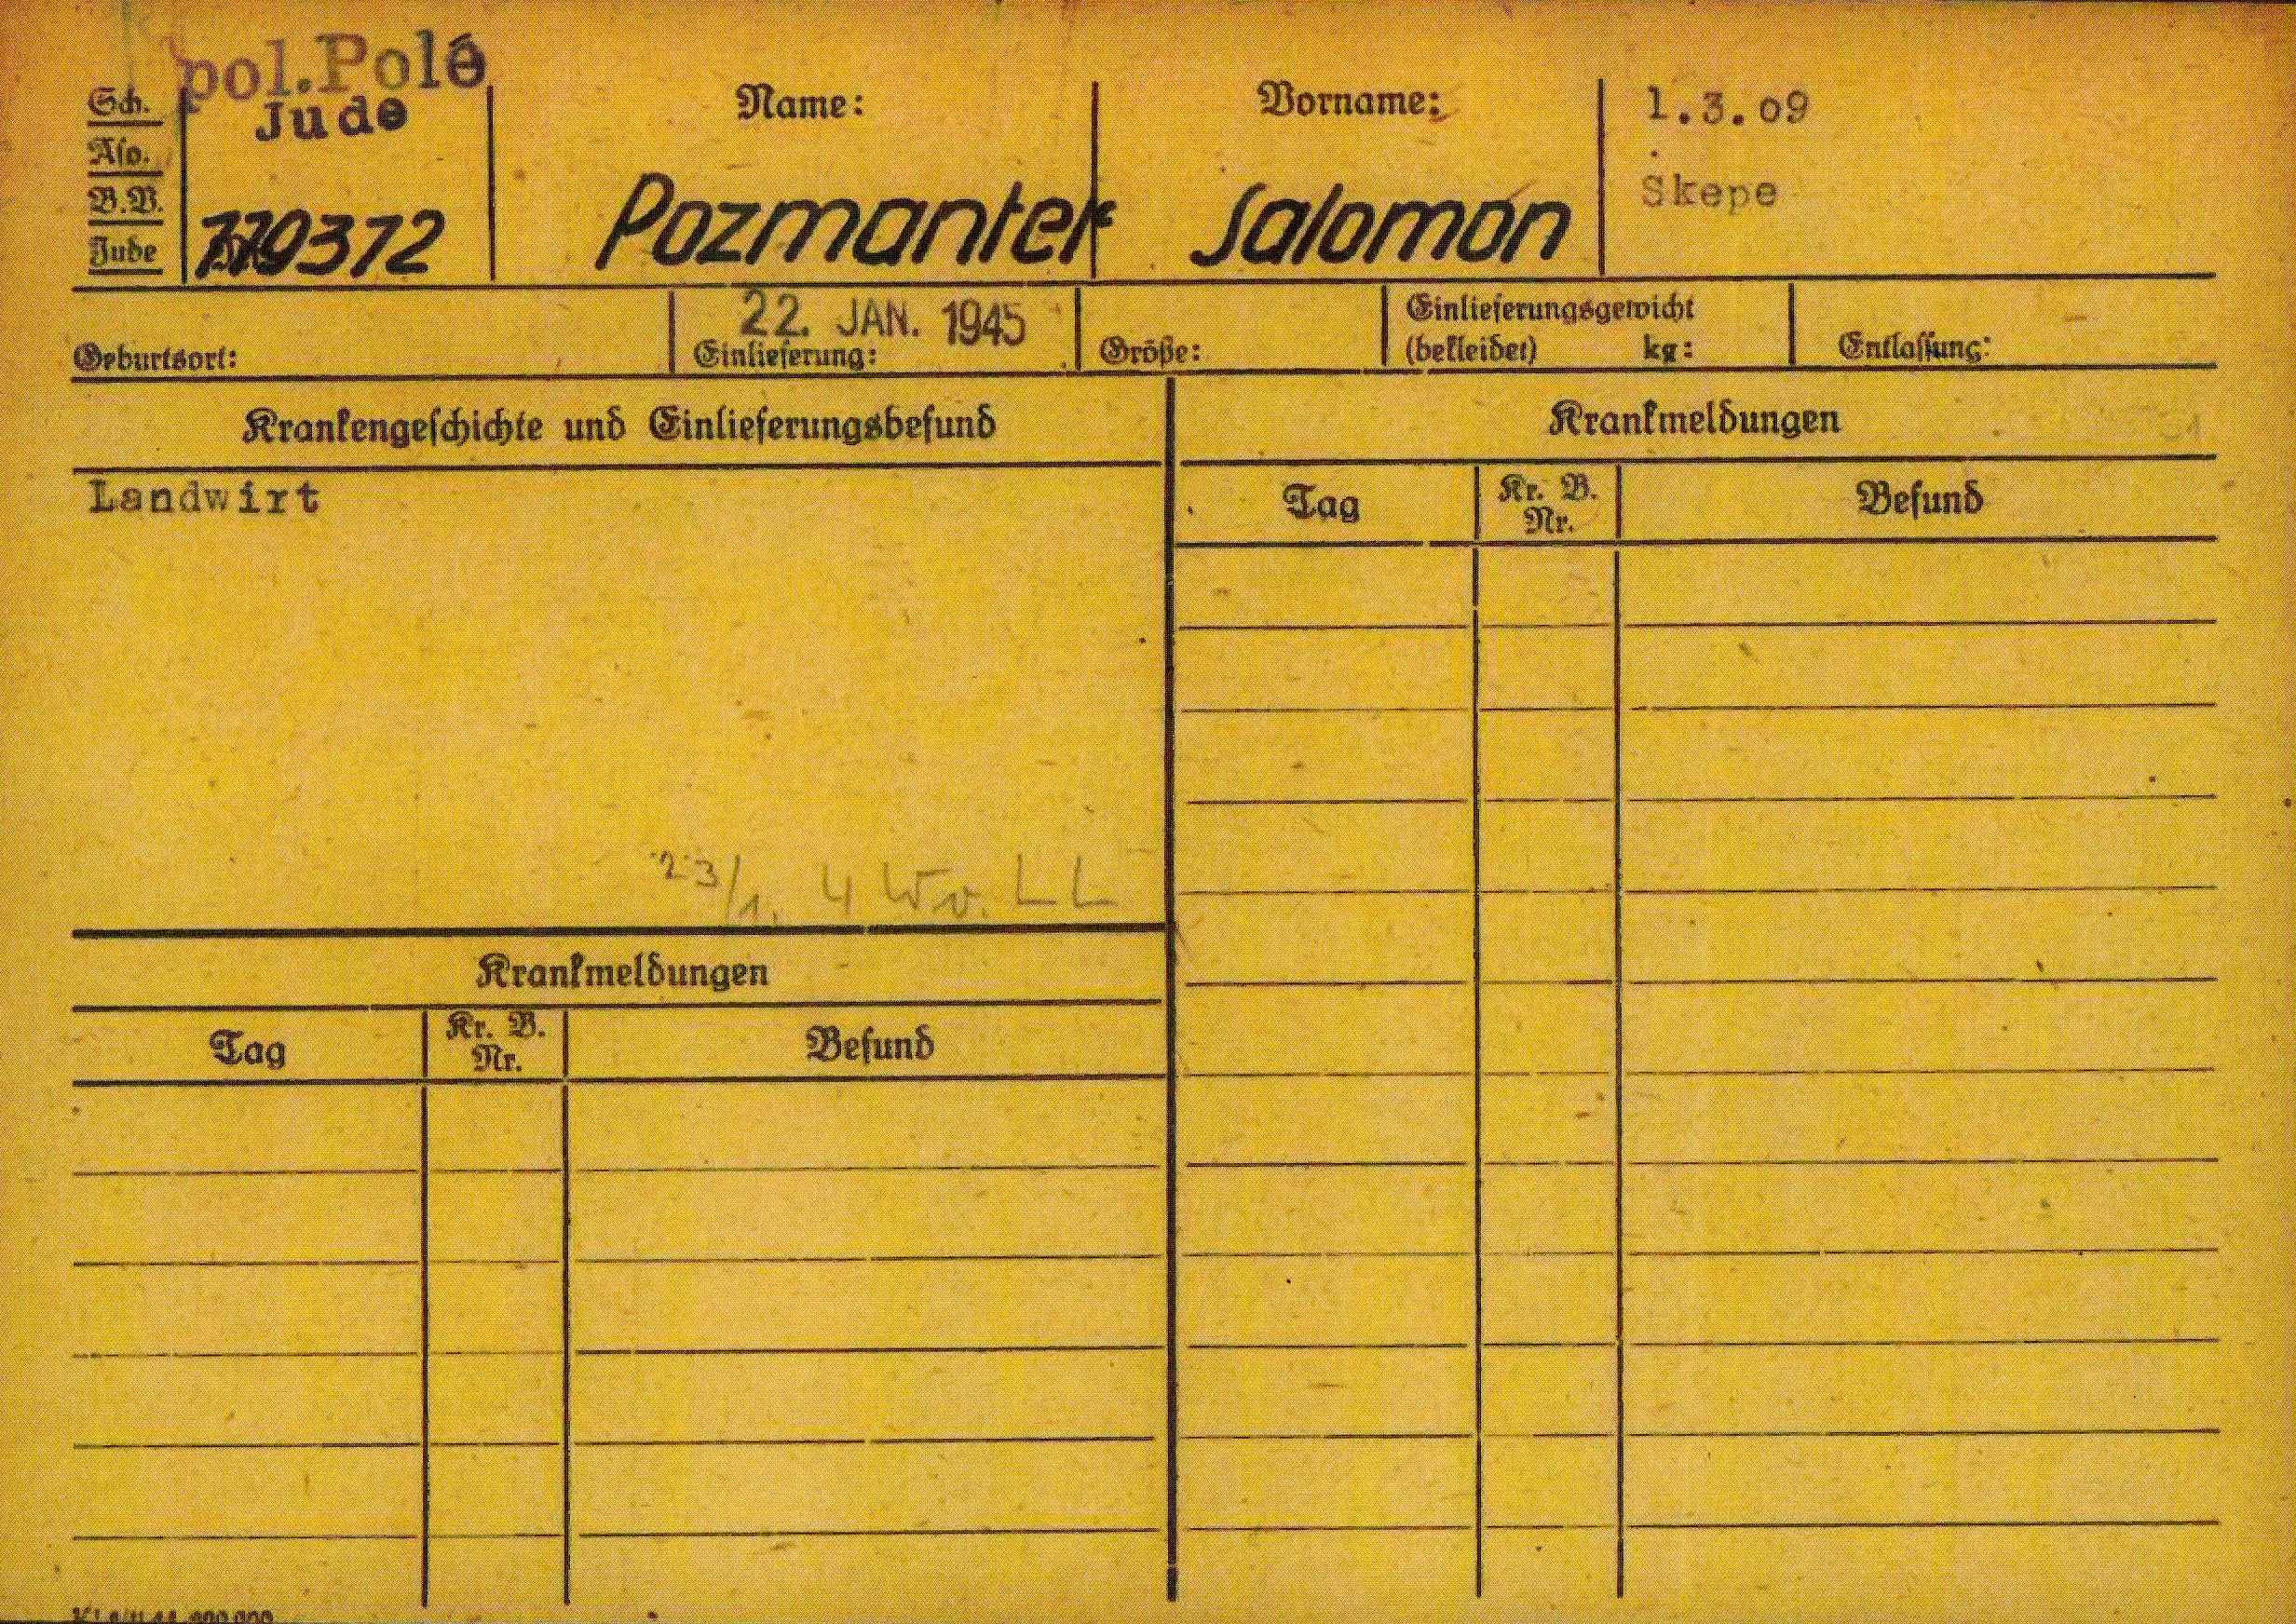 pol.Pole
Jude
Sch.
Aso.
B.V.
Jude
119372
Name:
Pozmanter
Vorname:
Salomon
1.3.09
Skepe
Geburtsort:
22. JAN. 1945
Einlieferung:
Größe:
Einlieferungsgewicht
(bekleidet) kg:
Entlassung:
Krankengeschichte und Einlieferungsbefund
Landwirt
23/1. 4 Wo. LL
Krankmeldungen
Tag
Kr. B.
Nr.
Befund
Krankmeldungen
Tag
Kr. B.
Nr.
Befund